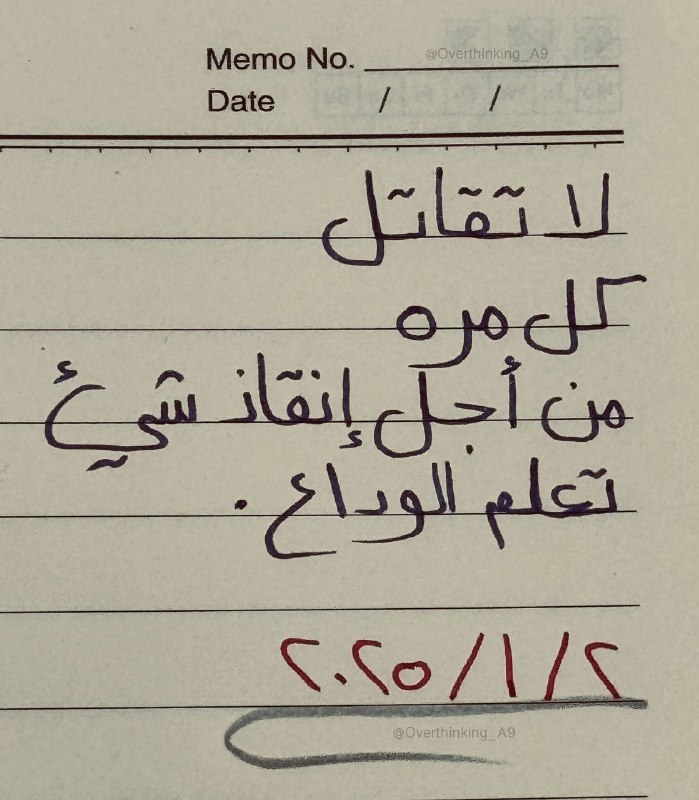 @Overthinking_A9
Memo No.
Date / /
لا تقاتل
كل مره
من أجل إنقاذ شيئ
تعلم الوداع .
٢/١/٢٠٢٥
@Overthinking_A9